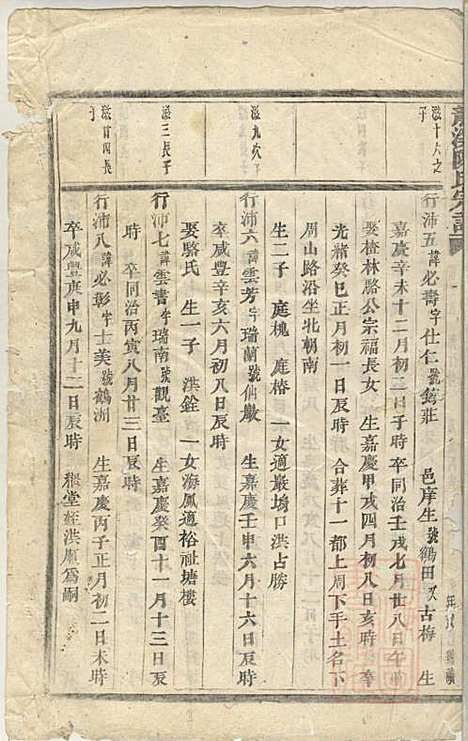 滋十六之子
行沛五諱必壽字仕仁號鑄莊 邑庠生號鶴田又古梅 生
嘉慶辛未十二月初二日子時卒同治壬戌七月廿八日午時
娶楂林路公宗福長女 生嘉慶甲戌四月初八日亥時 卒
光緒癸巳正月初一日辰時 合葬十一都上周下手土名下
周山路沿坐北朝南
生二子 庭槐 庭椿 一女適嚴塢口洪占勝
滋九次子
行沛六諱雲芳字瑞蘭號仙嚴 生嘉慶壬申六月十六日辰時
卒咸豐辛亥六月初八日辰時
娶駱氏 生一子 洪銓 一女海鳳適裕祉塘樓
滋三長子
行沛七諱雲書字瑞南號觀臺 生嘉慶癸酉十一月十三日辰
時 卒同治丙寅八月廿三日辰時
滋廿四長子
行沛八諱必彰字士美號鶴洲 生嘉慶丙子正月初二日未時
卒咸豐庚申九月十二日辰時 繼堂姪洪順為嗣